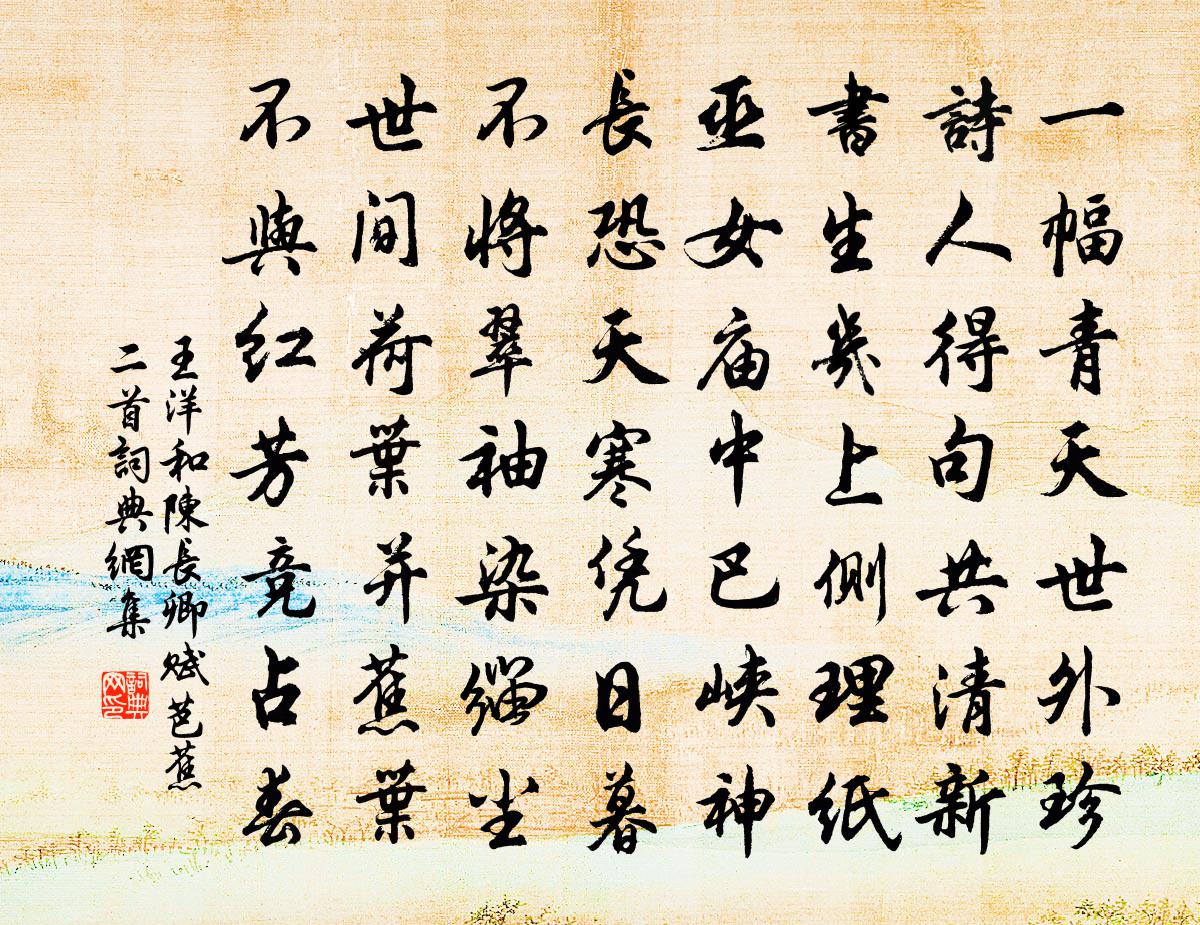 一幅青天世外珍
詩人得句共清新
書生幾上側理紙
巫女庙中巴峽神
長恐天寒凭日暮
不將翠袖染緇尘
世间荷葉并蕉葉
不與红芳竞占春
王洋和陳長卿賦芭蕉
二首詞典網集
詞典
网印